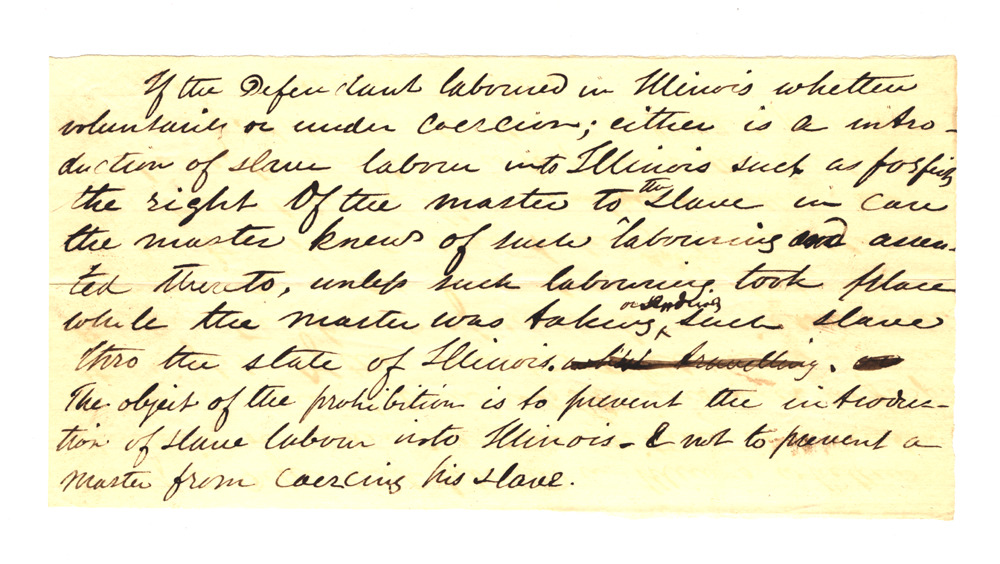 If the Defendant laboured in Illinois whether
voluntarily or under coercion; either is a intro-
duction of slave labour into Illinois such as forfeits
the right Of the master to the slave in case
the master knew of such labouring and assen-
ted thereto, unless such labouring took place
while the master was taking or sending such slave
thro the state of Illinois. travelling.
The object of the prohibition is to prevent the introduc-
tion of slave labour into Illinois - & not to prevent a
master from coercing his slave.